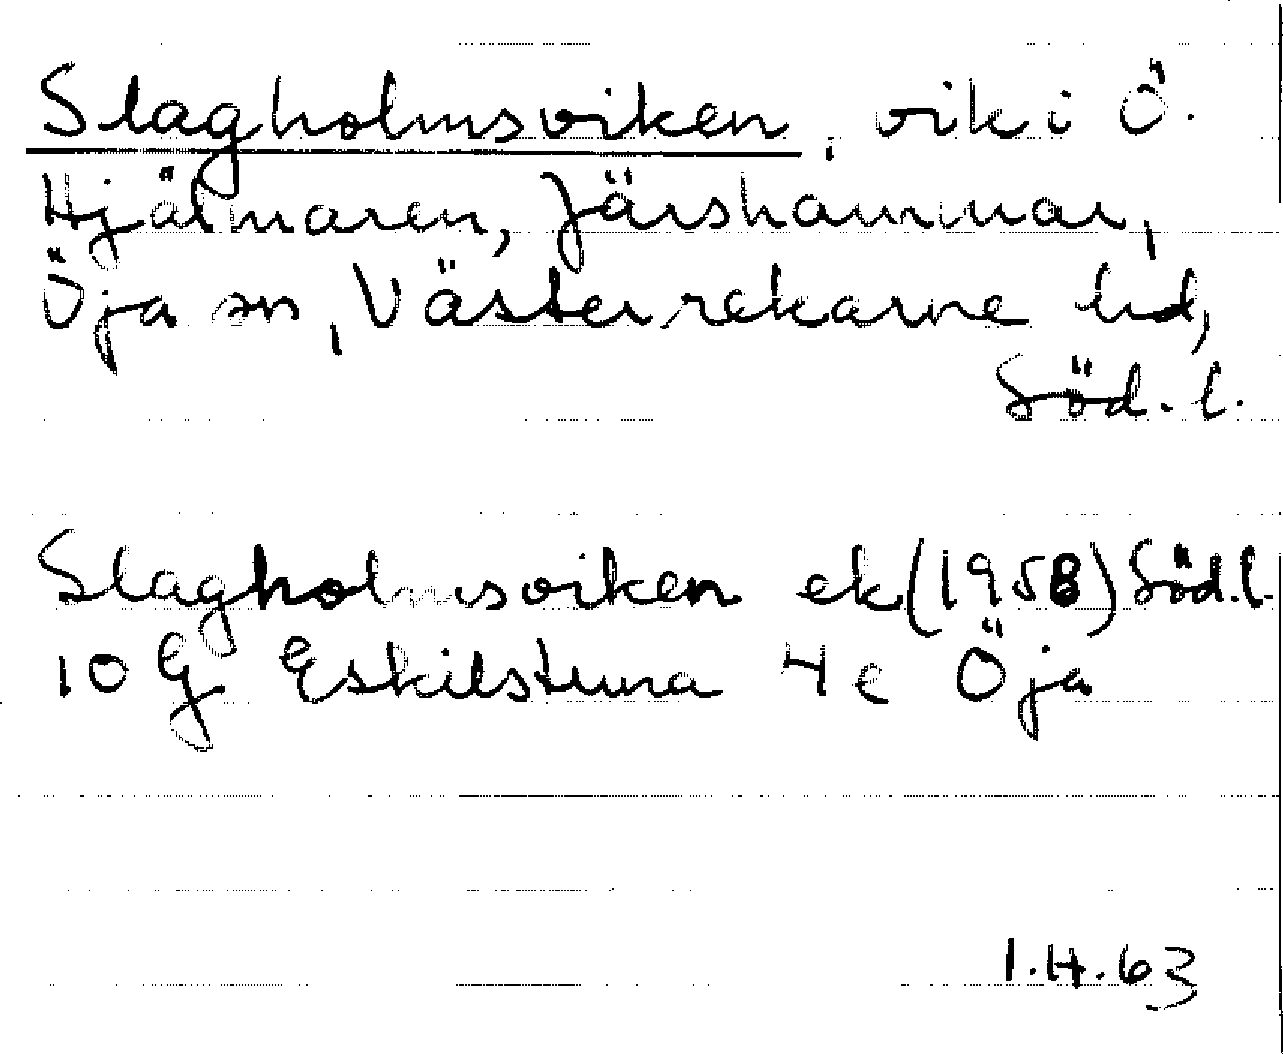 Slagholmsviken, vik i Ö.
Hjälmaren, Järshammar,
Öja sn, Västerrekarne hd,
Söd. l.
Slagholmsviken ek (1958) Söd. l.
10 G Eskilstuna 4 e Öja
I.H. 63